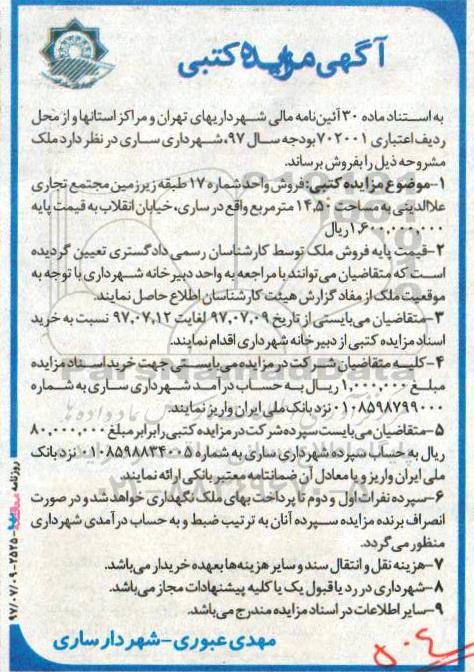 آگهی مزایده کتبی
به استناد ماده ۳۰ آئین نامه مالی شهرداریهای تهران و مراکز استانها و از محل
ردیف اعتباری ۷۰۲۰۰۱ بودجه سال ۹۷، شهرداری ساری در نظر دارد ملک
مشروحه ذیل را بفروش برساند.
۱-موضوع مزایده کتبی: فروش واحد شماره ۱۷ طبقه زیرزمین مجتمع تجاری
علاالدینی به مساحت ۱۴,۵۰ متر مربع واقع در ساری، خیابان انقلاب به قیمت پایه
۱,۶۰۰,۰۰۰,۰۰۰ ریال
۲-قیمت پایه فروش ملک توسط کارشناسان رسمی دادگستری تعیین گردیده
است که متقاضیان می‌توانند با مراجعه به واحد دبیرخانه شهرداری با توجه به
موقعیت ملک از مفاد گزارش هیئت کارشناسان اطلاع حاصل نمایند.
۳-متقاضیان می‌بایستی از تاریخ ۹۷,۰۷,۰۹ لغایت ۹۷,۰۷,۱۲ نسبت به خرید
اسناد مزایده کتبی از دبیرخانه شهرداری اقدام نمایند.
۴-کلیه متقاضیان شرکت در مزایده می‌بایستی جهت خرید اسناد مزایده
مبلغ ۱,۰۰۰,۰۰۰ ریال به حساب درآمد شهرداری ساری به شماره
۰۱۰۸۵۹۸۷۹۹۰۰۰ نزد بانک ملی ایران واریز نمایند.
۵-متقاضیان می‌بایست سپرده شرکت در مزایده کتبی را برابر مبلغ ۸۰,۰۰۰,۰۰۰
ریال به حساب سپرده شهرداری ساری به شماره ۰۱۰۸۵۹۸۸۳۴۰۰۵ نزد بانک
ملی ایران واریز و یا معادل آن ضمانتنامه معتبر بانکی ارائه نمایند.
۶-سپرده نفرات اول و دوم تا پرداخت بهای ملک نگهداری خواهد شد و در صورت
انصراف برنده مزایده سپرده آنان به ترتیب ضبط و به حساب درآمدی شهرداری
منظور می گردد.
۷-هزینه نقل و انتقال سند و سایر هزینه‌ها بعهده خریدار می‌باشد.
۸-شهرداری در رد یا قبول یک یا کلیه پیشنهادات مجاز می‌باشد.
۹-سایر اطلاعات در اسناد مزایده مندرج می‌باشد.
مهدی عبوری-شهردار ساری
روزنامه
۲۵۲۵-۹۷/۰۷/۰۹